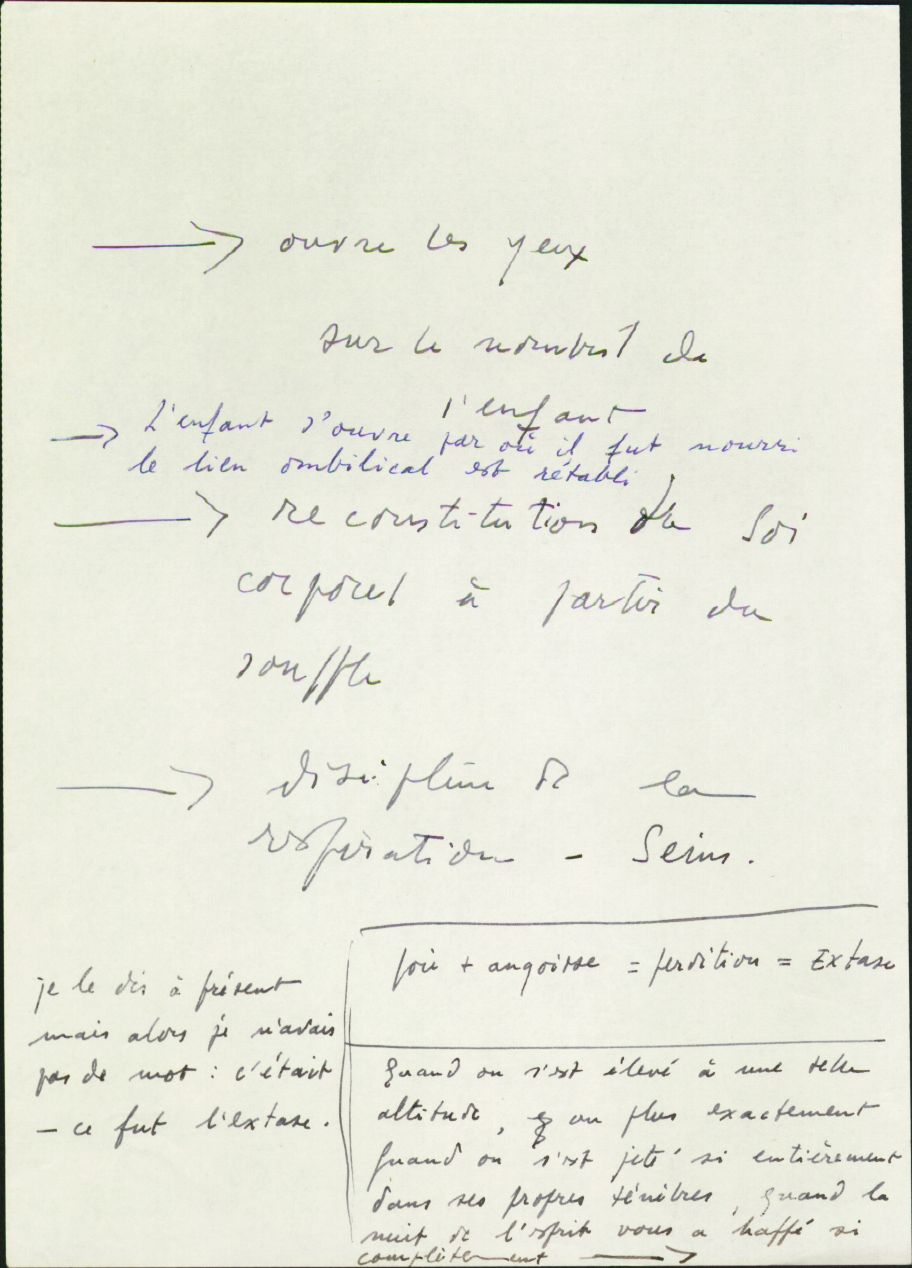 → ouvre les yeux
sur le nombril de
l'enfant
→ L'enfant s'ouvre par où il fut nourri
le lien ombilical est rétabli
→ reconstitution du Soi
corporel à partir du
souffle
→ discipline de la
respiration – Seins.
joie + angoisse = perdition = Extase
je le dis à présent
mais alors je n'avais
pas de mot : c'était
– ce fut l'extase.
Quand on s'est élevé à une telle
altitude, ou plus exactement
quand on s'est jeté si entièrement
dans ses propres ténèbres, quand la
nuit de l'esprit vous a haffé si
complètement →